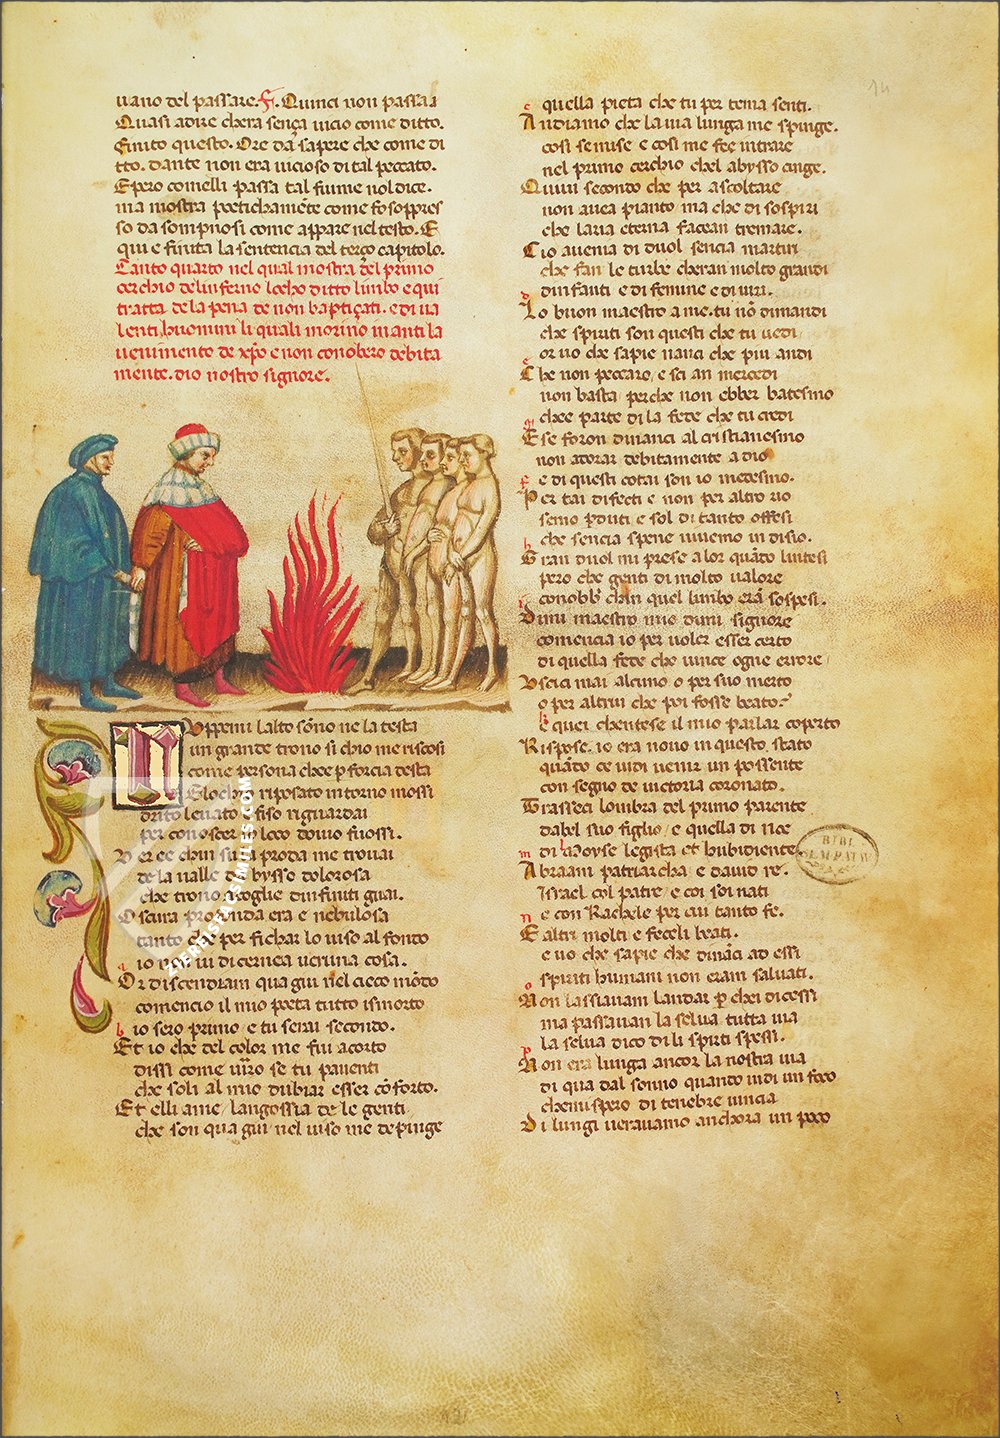 uano del passare. Quinci non passa
Quasi adire chera sença uicio come ditto.
Finito questo. Ore da sapere che come di
tto. dante non era uicioso di tal peccato.
Epero comelli passa tal fiume nol dice.
ma mostra poetichamēte come fo soppres
so da sompnosi come appare nel testo. E
qui e finita la sentencia del terço capitolo.
Canto quarto nel qual mostra del primo
cerchio delinferno ditto limbo e qui
tratta de la pena de non baptiçati. e di ua
lenti huomini li quali morino inanti la
uenimento de xp̄o e non conobero debita
mente. dio nostro signore.
Rvppemi lalto sōno ne la testa
un grande trono si chio me riscosi
come persona chee p forcia desta
E lochio riposato intorno mossi
drito leuato e fiso riguardai
per conoscer lo loco douio fuossi.
Ver ee chin su la proda me trouai
de la ualle dabysso dolorosa
che trono acoglie dinfiniti guai.
Oscura profonda era e nebulosa
tanto che per fichar lo uiso al fondo
io non ui dicernea ueruna cosa.
Or discendiam qua giu nel cieco mōdo
comencio il mio poeta tutto ismorto
b io sero primo e tu serai secondo.
Et io che del color me fui acorto
dissi come uerro se tu pauenti
che soli al mio dubiar esser cōforto.
Et elli ame langossia de le genti
che son qua giu nel uiso me depinge
14
c quella pieta che tu per tema senti.
Andiamo che la uia lunga me spinge.
cosi se mise e cosi me fee intrare
nel primo cerchio chel abysso cinge.
Quiui secondo che per ascoltare
non auea pianto ma che di sospiri
che laria eterna facean tremare.
Cio auenia di duol sencia martiri
che fan le turbe cheran molto grandi
d dinfanti e di femine e di uiri.
Lo buon maestro a me. tu nō dimandi
che spiriti son questi che tu uedi
or uo che sapie nanci che piu andi
e Che non peccaro e sei an mercedi
non basta perche non ebber batesmo
chee parte di la fede che tu credi
E se foron dinanci al cristianesmo
non adorar debitamente a dio
f e di questi cotai son io medesmo.
Per tai difecti e non per altro rio
semo pduti e sol di tanto offesi
h che sencia spene uiuemo in disio.
Gran duol mi prese a lor quādo lintesi
pero che genti di molto ualore
conobbi chin quel limbo erā sospesi.
Dimi maestro mio dimi signore
comencia io per uoler esser certo
di quella fede che uince ogne errore
Vscici mai alcuno o per suo merto
o per altrui che poi fosse beato?
k E quei chentese il mio parlar coperto
Rispose. io era nouo in questo stato
quādo ce uidi uenir un possente
con segno de uictoria coronato.
Trasseci lombra del primo parente
dabel suo figlio e quella di noe
m di Moyse legista et hubidiente
Abraam patriarcha e dauid re.
Israel col patre e coi soi nati
n e con Rachele per cui tanto fe.
E altri molti e feceli beati.
e uo che sapie che dināci ad essi
o spiriti humani non eram saluati.
Non lassiauam landar p chei dicessi
ma passauan la selua tutta uia
p la selua dico di li spirti spessi.
Non era lunga ancor la nostra uia
di qua dal sonno quando uidi un foco
chemispero di tenebre uincia
Di lungi ueravamo anchora un poco
BIBL
SEM. PATAV
ZIEREISFACSIMILES.COM